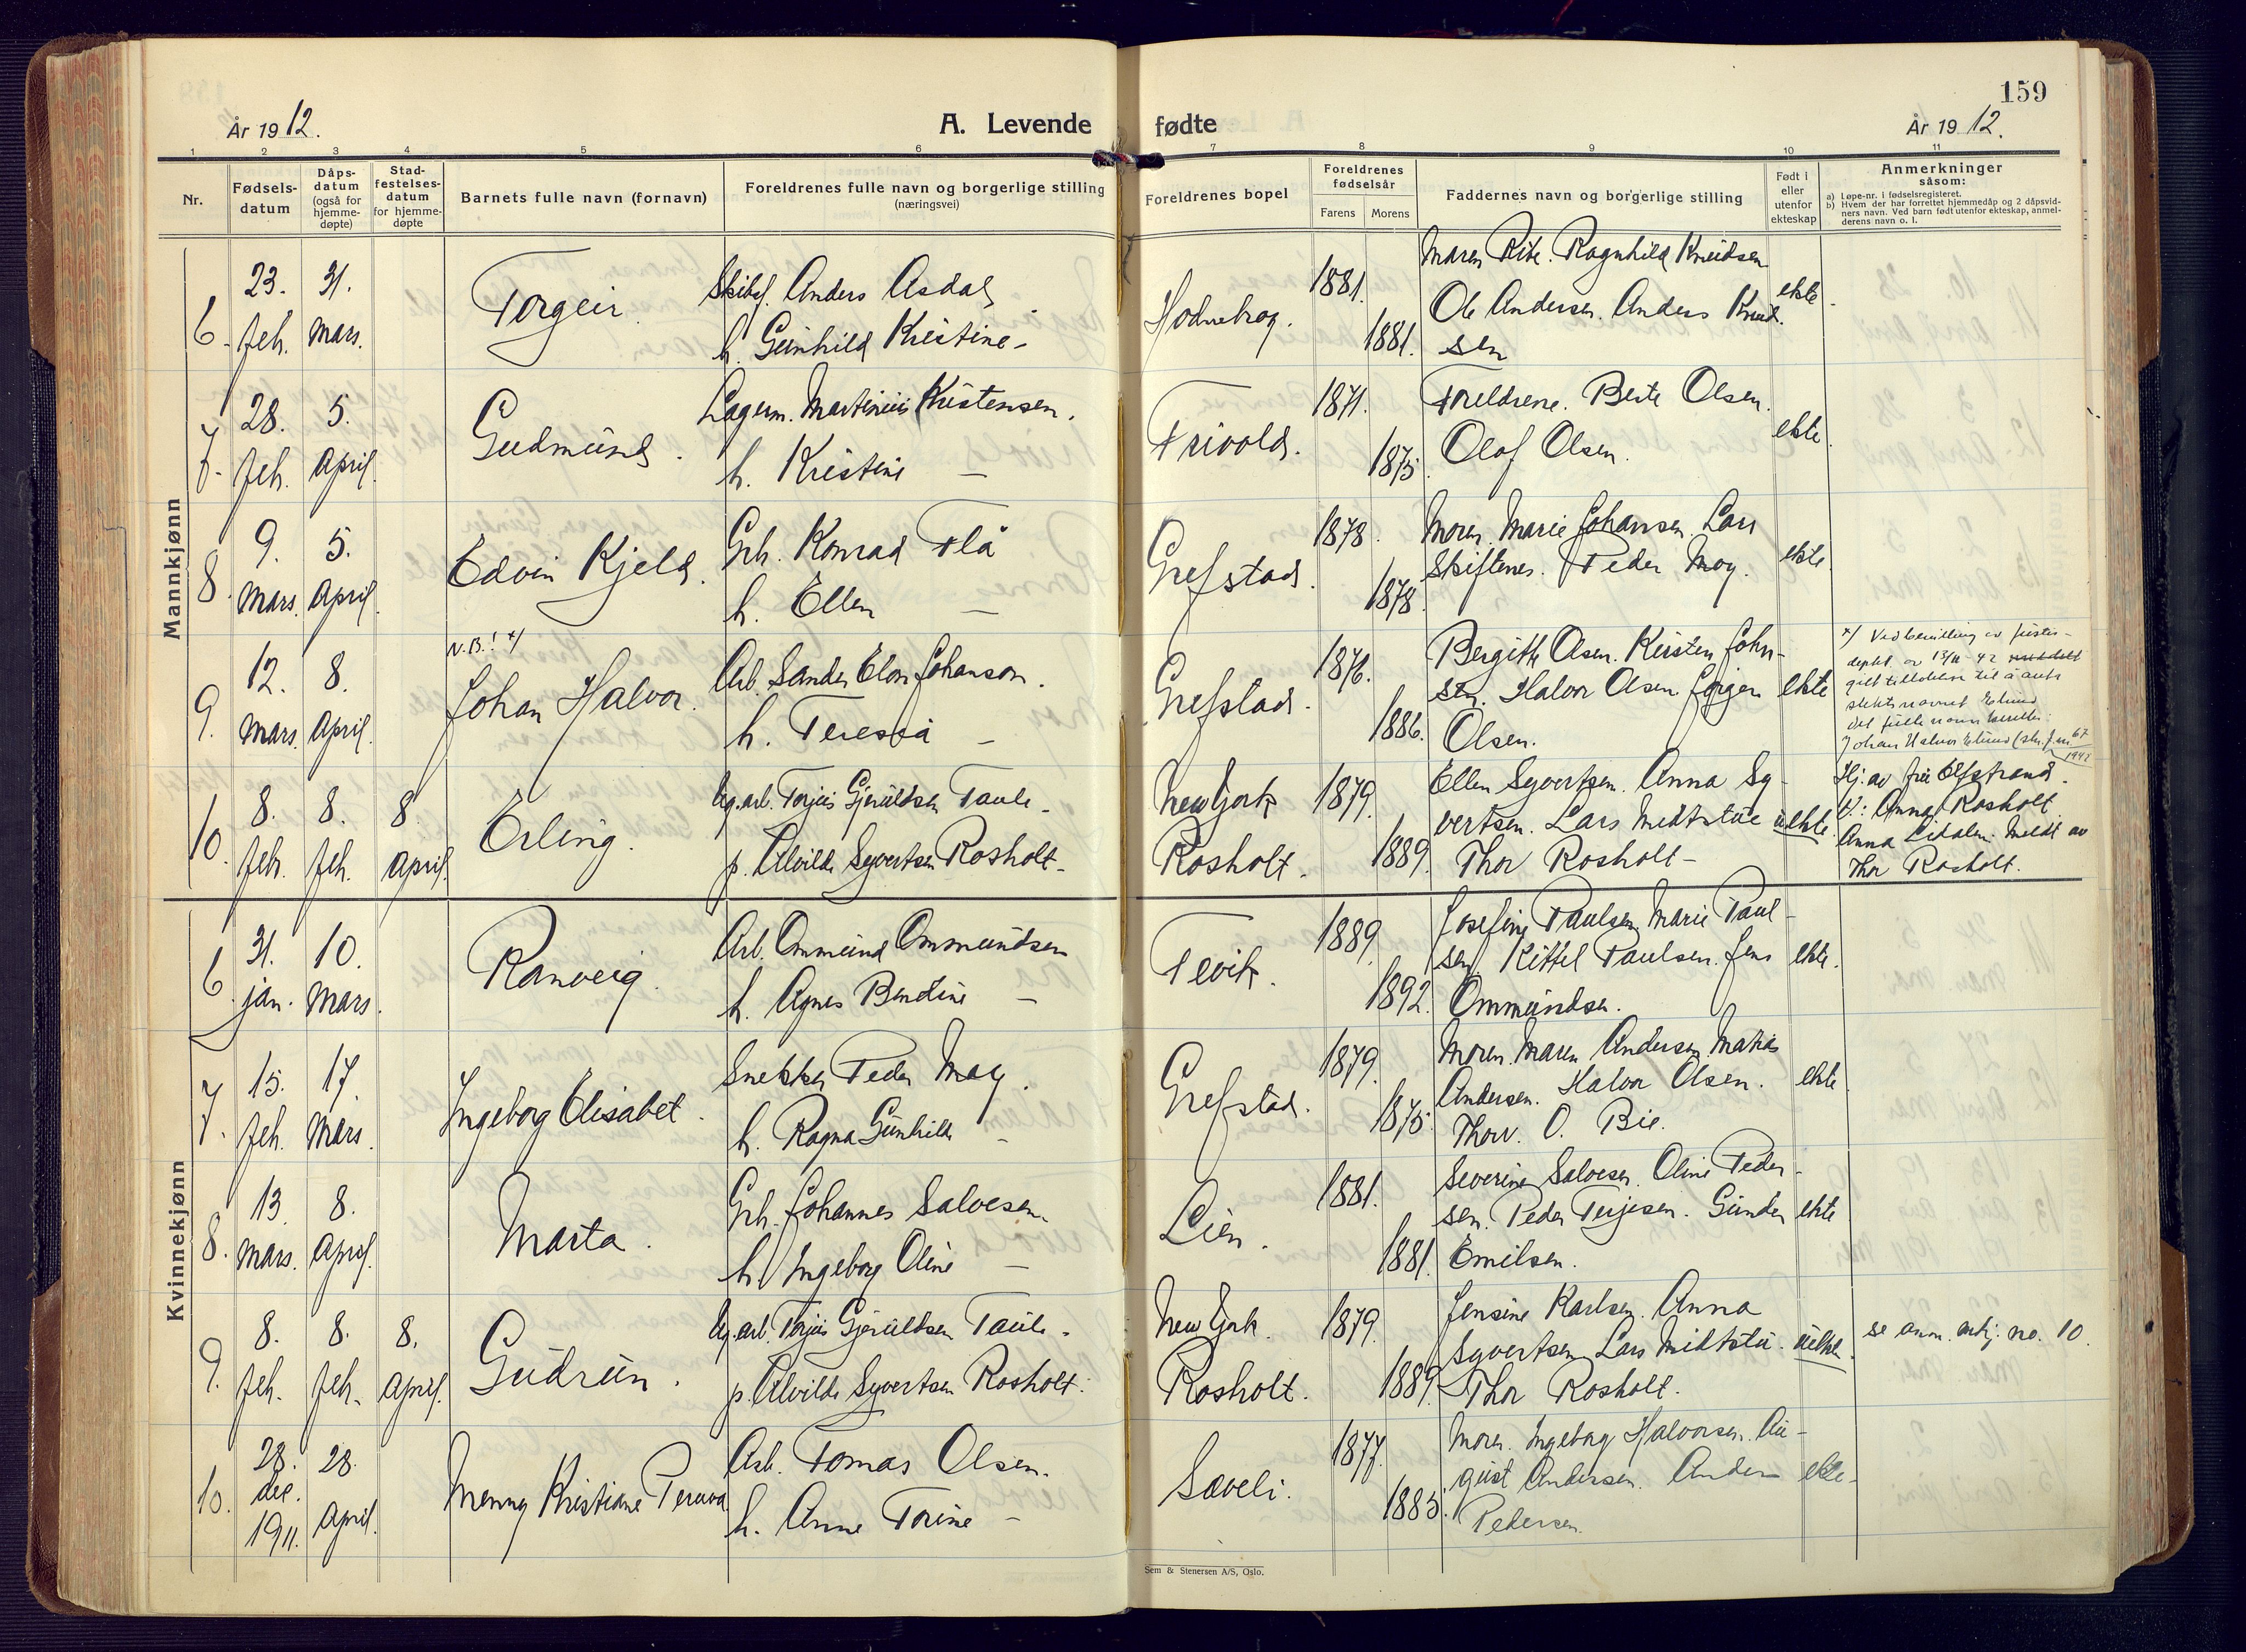 159
År 1912.
A. Levende
fødte
År 1912.
1 2 3 4 5 6 7 8 9 10 11
Nr.
Fødsels-
datum
Dåps-
datum
(også for
hjemme-
døpte)
Stad-
festelses-
datum
for hjemme-
døpte
Barnets fulle navn (fornavn)
Foreldrenes fulle navn og borgerlige stilling
(næringsvei)
Foreldrenes bopel
Foreldrenes
fødselsår
Farens Morens
Faddernes navn og borgerlige stilling
Født i
eller
utenfor
ekteskap
Anmerkninger
såsom:
a) Løpe-nr. i fødselsregisteret.
b) Hvem der har forrettet hjemmedåp og 2 dåpsvid-
ners navn. Ved barn født utenfor ekteskap, anmel-
derens navn o. l.
Mannkjønn
6. 23. feb. 31. mars. Torgeir
Skibsf. Anders Åsdal
h. Gunhild Kristine -
1881. 1881.
Maren Ribe. Ragnhild Knudsen
Ole Andersen. Anders Knud-
sen
ekte
7. 28. feb. 5. april. Gudmund.
Lagerm. Martinius Kristensen.
h. Kristine -
Frivold.
1871. 1875.
Foreldrene. Berte Olsen.
Olaf Olsen.
ekte.
8. 9. mars. 5. april. Edvin Kjeld.
Grb. Konrad Flå
h. Ellen -
Grefstad.
1878. 1878.
Moren. Marie Johansen. Lars
Skiftenes. Peder Moy.
ekte
9. 12. mars. 8. april. N.B.! x/
Johan Halvor.
Arb. Sander Elon Johanson.
h. Teresia -
Grefstad.
1876. 1886.
Bergitte Olsen. Kirsten John-
sen. Halvor Olsen. Jørgen
Olsen.
ekte
x/ Ved bevilling av justis-
deptet. av 13/11-42
gitt tillatelse til å anta
slektsnavnet Elund
det fulle navn herefter:
Johan Halvor Elund
10. 8. feb. 8. feb. 8. april. Erling.
Ug. arb. Torjus Gjeruldsen Taule -
p. Alvilde Syvertsen Rosholt -
New York
Rosholt.
1879. 1889.
Ellen Syvertsen. Anna Sy-
vertsen. Lars Midtstue
Thor Rosholt -
uekte.
Hj. av fru Elfstrand.
V: Anna Rosholt
Anna Lidalen. Meldt av
Thor Rosholt.
Kvinnekjønn
6. 31. jan. 10. mars. Ranveig.
Arb. Ommund Ommundsen
h. Agnes Bendine -
Tevik.
1889. 1892.
Josefine Paulsen. Marie Paul-
sen. Kittel Paulsen. Jens
Ommundsen.
ekte.
7. 15. feb. 17. mars. Ingeborg Elisabet.
Snekker Peder Moy.
h. Ragna Gunhild -
Grefstad.
1879. 1875.
Moren. Maren Andersen. Matias
Andersen. Halvor Olsen.
Thorv. O. Bie.
ekte.
8. 13. mars. 8. april. Marta.
Grb. Johannes Salvesen.
h. Ingeborg Oline -
Lien.
1881. 1881.
Severine Salvesen. Oline Peder-
sen. Peder Terjesen. Gunder
Emilsen.
ekte
9. 8. feb. 8. feb. 8. april. Gudrun.
Ug. arb. Torjus Gjeruldsen Taule.
p. Alvilde Syvertsen Rosholt.
New York.
Rosholt.
1879. 1889.
Jensine Karlsen. Anna
Syvertsen. Lars Midtstu.
Thor Rosholt.
uekte.
se anm. mkj. no. 10.
10. 28. des. 1911. 28. april. Menny Kristiane
Arb. Tomas Olsen.
h. Anne Torine -
Sæveli.
1877. 1885.
Moren. Ingeborg Halvorsen. Au-
gust Andersen. Anders
Pedersen.
ekte.
Sem & Stenersen A/S, Oslo.